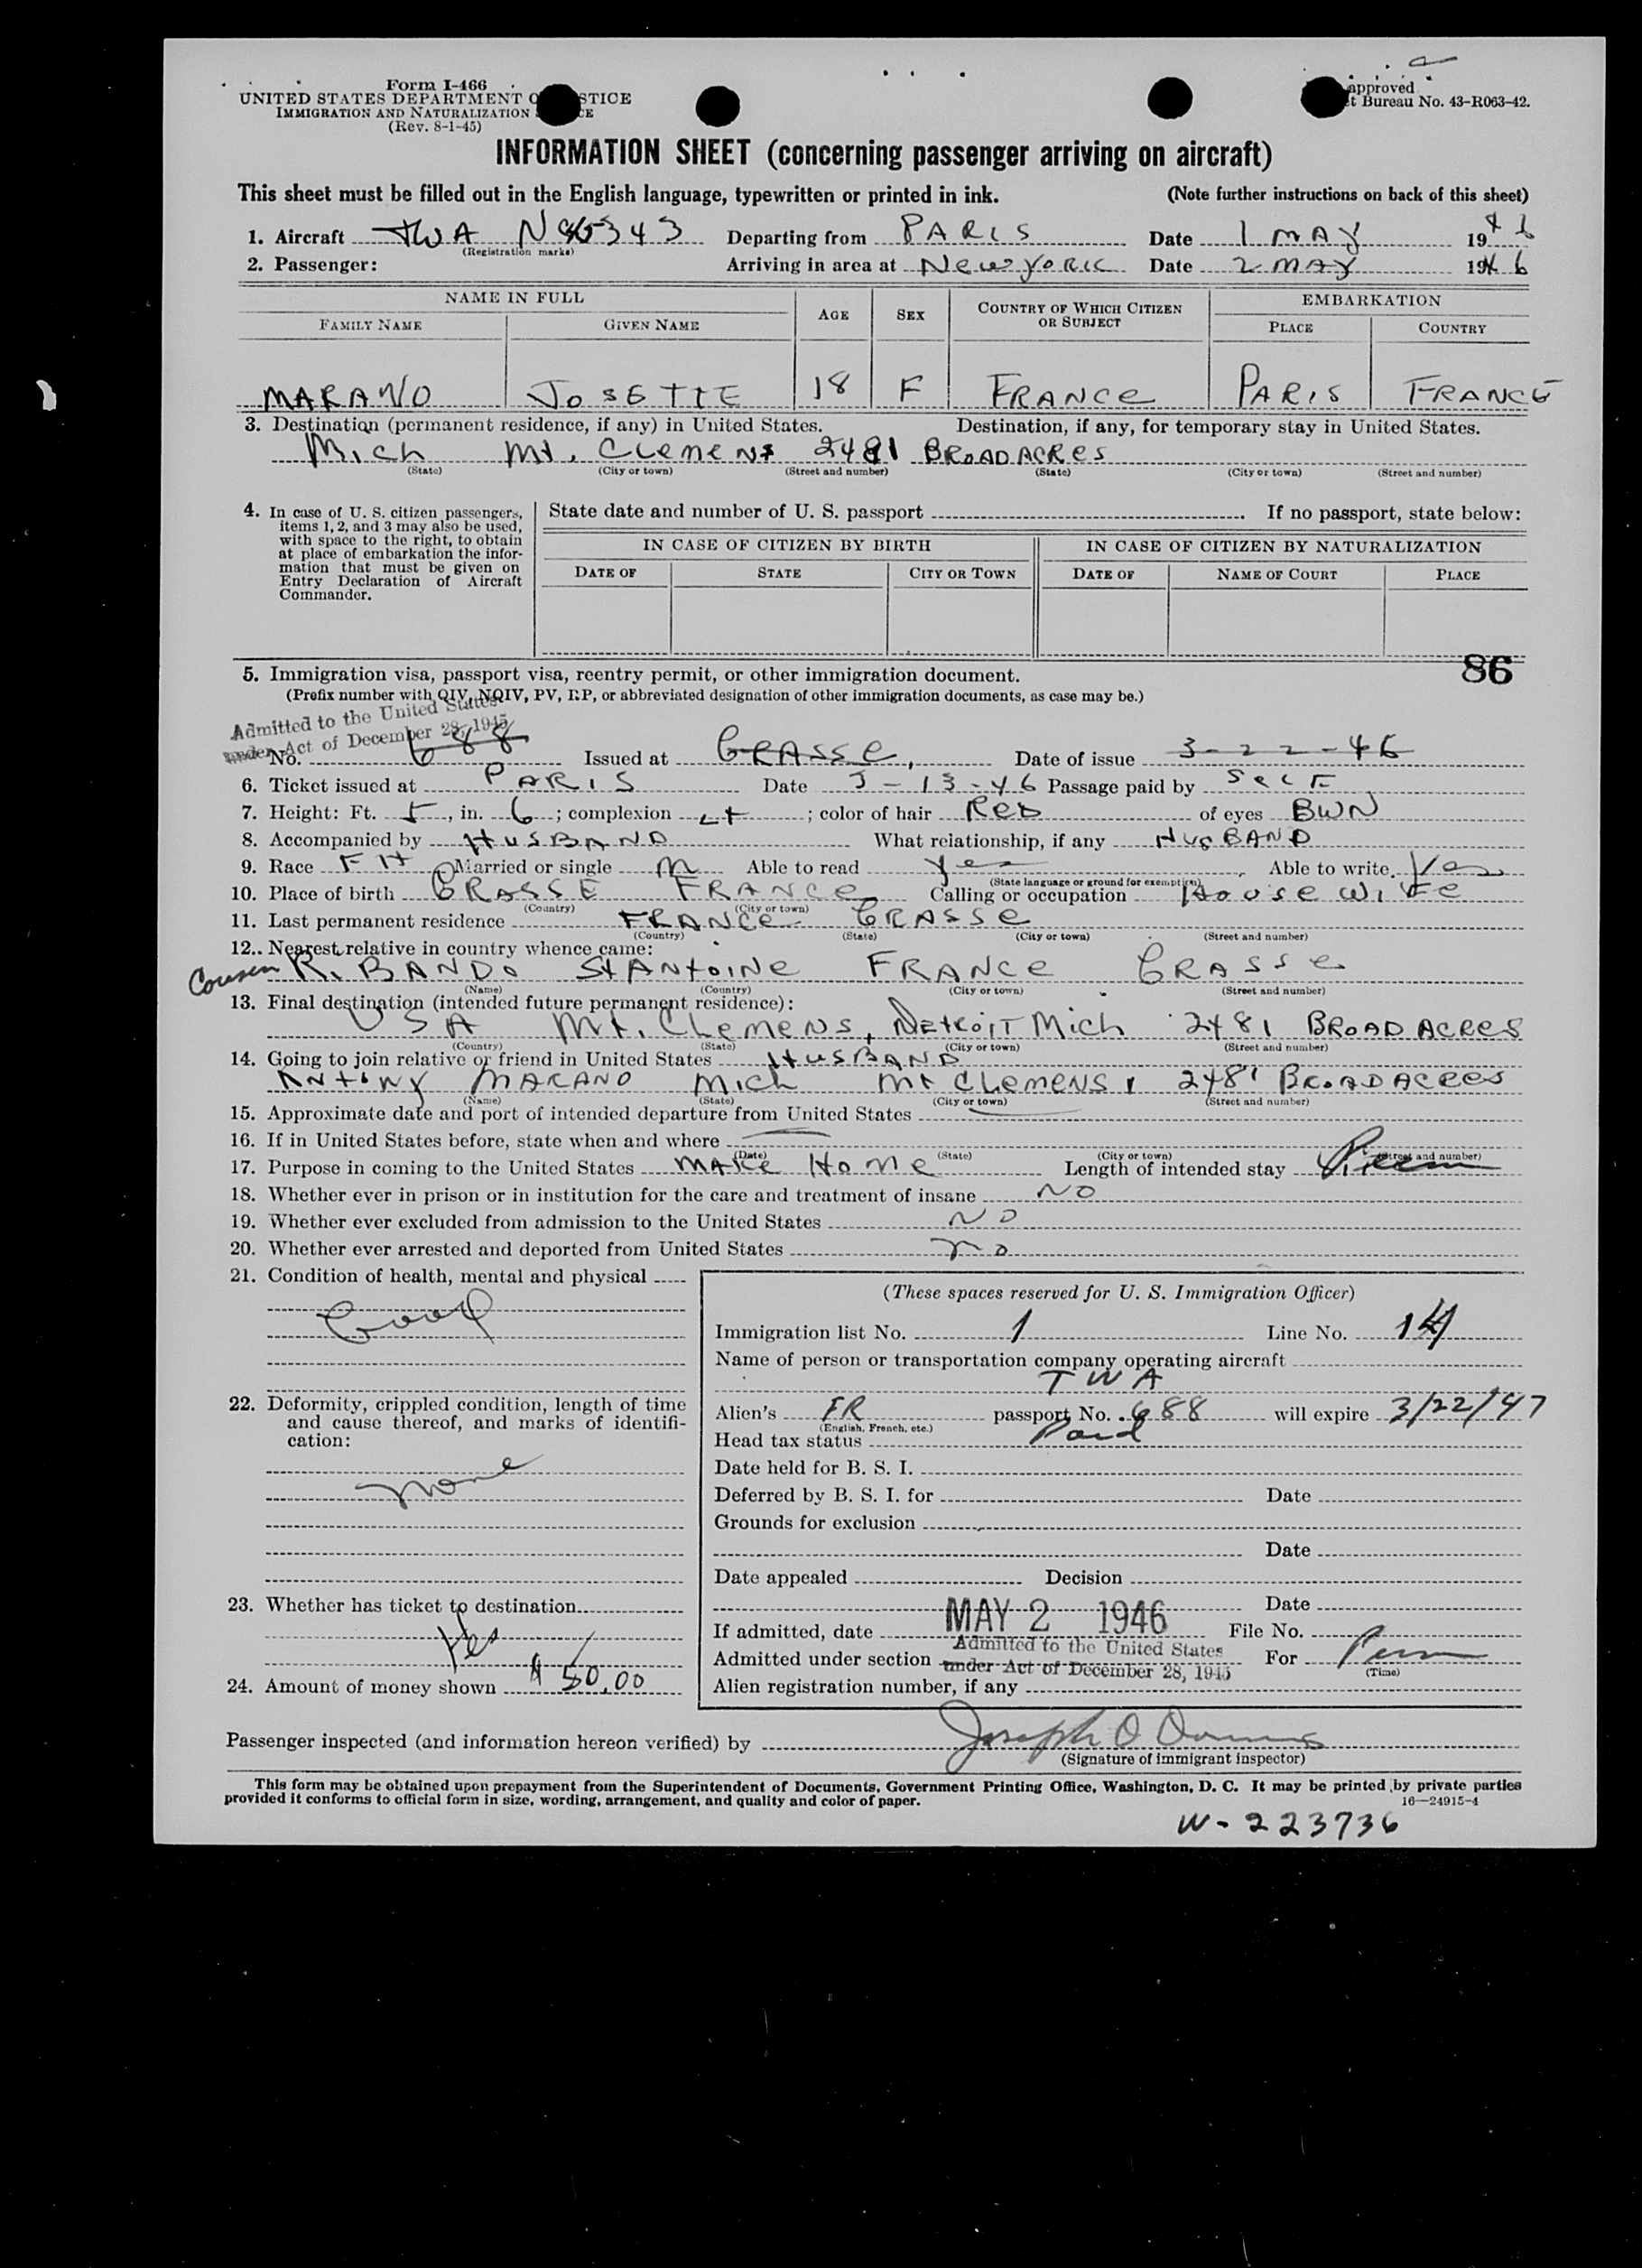 Form I-466
UNITED STATES DEPARTMENT O STICE
IMMIGRATION AND NATURALIZATION E
(Rev. 8-1-45)
approved
t Bureau No. 43-R063-42.
INFORMATION SHEET (concerning passenger arriving on aircraft)
This sheet must be filled out in the English language, typewritten or printed in ink. (Note further instructions on back of this sheet)
1. Aircraft TWA Departing from PARIS Date 1 MAY 1946
(Registration marks)
2. Passenger: Arriving in area at New YORK Date 2 MAY 1946
NAME IN FULL AGE SEX COUNTRY OF WHICH CITIZEN OR SUBJECT EMBARKATION
FAMILY NAME GIVEN NAME PLACE COUNTRY
MARANO JOSETTE 18 F FRANCE PARIS FRANCE
3. Destination (permanent residence, if any) in United States. Destination, if any, for temporary stay in United States.
Mich Mt. Clemens 2481 BROADACRES
(State) (City or town) (Street and number) (State) (City or town) (Street and number)
4. In case of U. S. citizen passengers, items 1, 2, and 3 may also be used, with space to the right, to obtain at place of embarkation the information that must be given on Entry Declaration of Aircraft Commander.
State date and number of U. S. passport If no passport, state below:
IN CASE OF CITIZEN BY BIRTH IN CASE OF CITIZEN BY NATURALIZATION
DATE OF STATE CITY OR TOWN DATE OF NAME OF COURT PLACE
86
5. Immigration visa, passport visa, reentry permit, or other immigration document.
(Prefix number with QIV, NQIV, PV, RP, or abbreviated designation of other immigration documents, as case may be.)
Admitted to the United States
under Act of December 28, 1945
No. 688 Issued at GRASSE, Date of issue 3-22-46
6. Ticket issued at PARIS Date 3-13-46 Passage paid by SELF
7. Height: Ft. 5, in. 6; complexion LT; color of hair RED of eyes BWN
8. Accompanied by HUSBAND What relationship, if any HUSBAND
9. Race FH Married or single M Able to read Yes Able to write Yes
(State language or ground for exemption)
10. Place of birth GRASSE FRANCE Calling or occupation House WIFE
(Country) (City or town)
11. Last permanent residence FRANCE GRASSE
(Country) (State) (City or town) (Street and number)
12. Nearest relative in country whence came:
Cousin R. BANDO St ANTOINE FRANCE GRASSE
(Name) (Country) (City or town) (Street and number)
13. Final destination (intended future permanent residence):
USA Mt. Clemens, DETROIT Mich 2481 BROADACRES
(Country) (State) (City or town) (Street and number)
14. Going to join relative or friend in United States HUSBAND
ANTONY MARANO Mich Mt CLEMENS, 2481 BROADACRES
(Name) (State) (City or town) (Street and number)
15. Approximate date and port of intended departure from United States
16. If in United States before, state when and where
(Date) (State) (City or town) (Street and number)
17. Purpose in coming to the United States MAKE HOME Length of intended stay Perm
18. Whether ever in prison or in institution for the care and treatment of insane NO
19. Whether ever excluded from admission to the United States NO
20. Whether ever arrested and deported from United States no
21. Condition of health, mental and physical
Good
22. Deformity, crippled condition, length of time and cause thereof, and marks of identification:
none
23. Whether has ticket to destination
Yes
24. Amount of money shown $50.00
(These spaces reserved for U. S. Immigration Officer)
Immigration list No. 1 Line No. 14
Name of person or transportation company operating aircraft
TWA
Alien's FR passport No. 688 will expire 3/22/47
(English, French, etc.)
Head tax status Paid
Date held for B. S. I.
Deferred by B. S. I. for Date
Grounds for exclusion
Date
Date appealed Decision
Date
If admitted, date MAY 2 1946 File No.
Admitted under section Admitted to the United States under Act of December 28, 1945 For Perm
(Time)
Alien registration number, if any
Passenger inspected (and information hereon verified) by Joseph O
(Signature of immigrant inspector)
This form may be obtained upon prepayment from the Superintendent of Documents, Government Printing Office, Washington, D. C. It may be printed by private parties
provided it conforms to official form in size, wording, arrangement, and quality and color of paper. 16—24915-4
W-223736